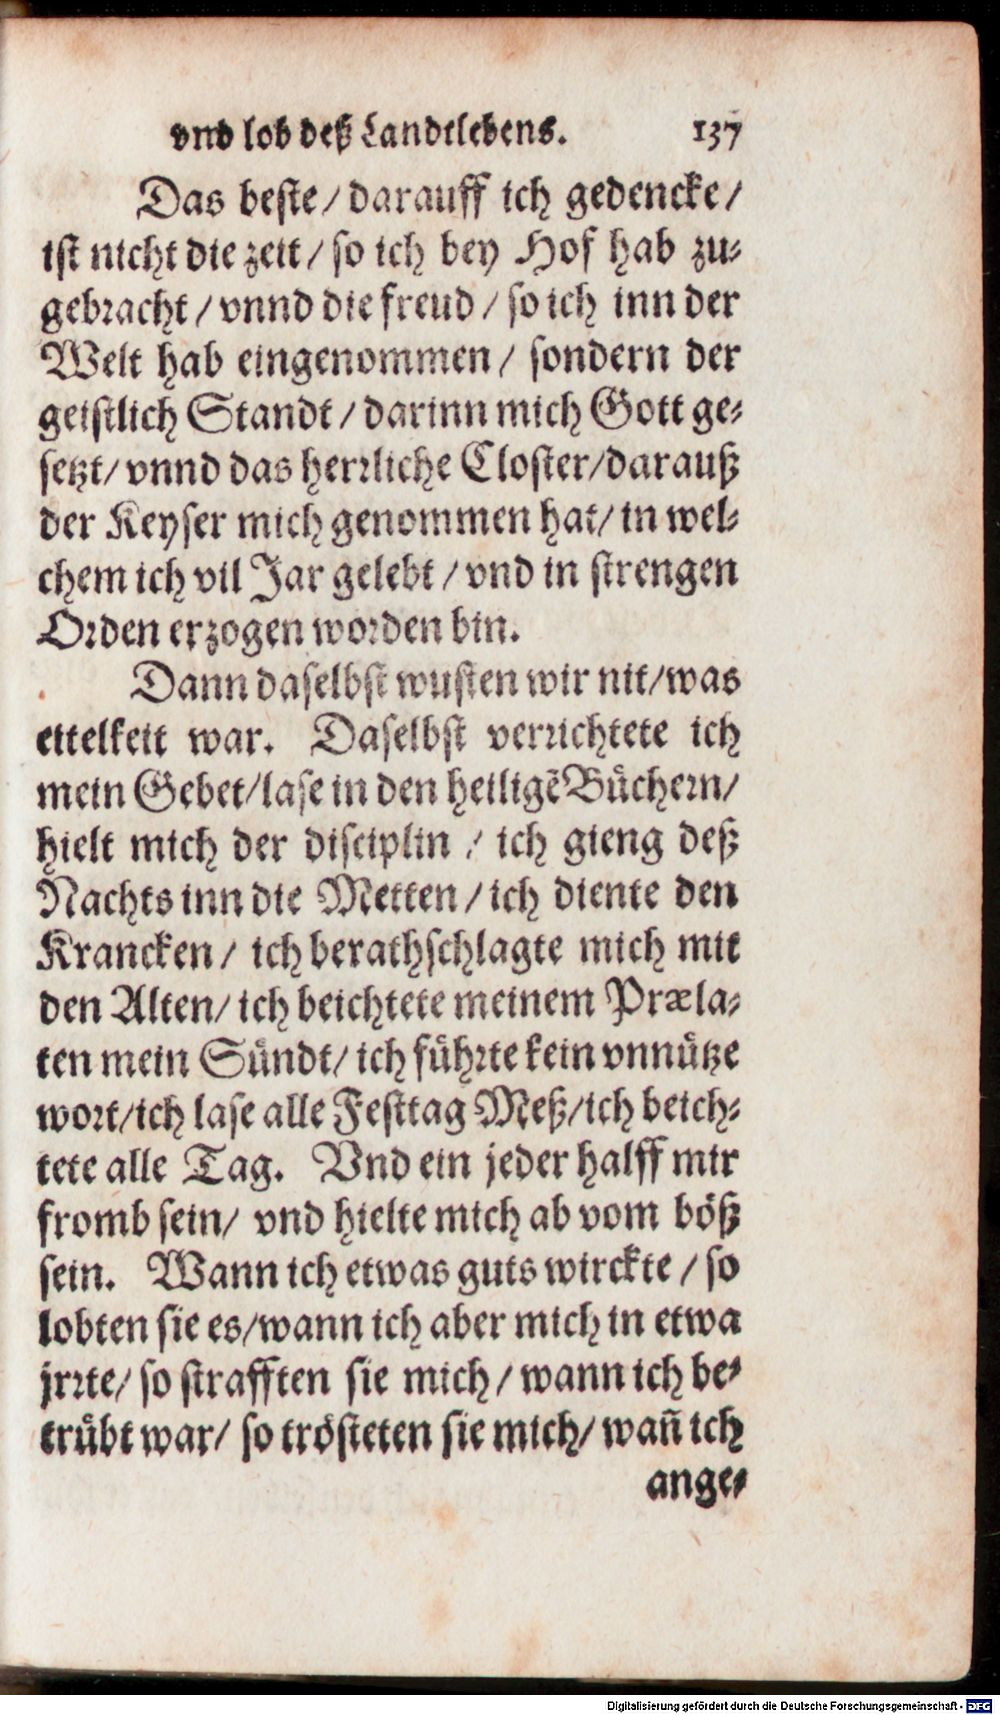 vnd lob deß Landtlebens. 137
Das beste/ darauff ich gedencke/
ist nicht die zeit/ so ich bey Hof hab zu-
gebracht/ vnnd die freud/ so ich inn der
Welt hab eingenommen/ sondern der
geistlich Standt/ darinn mich Gott ge-
setzt/ vnnd das herrliche Closter/darauß
der Keyser mich genommen hat/ in wel-
chem ich vil Jar gelebt/ vnd in strengen
Orden erzogen worden bin.
Dann daselbst wusten wir nit/was
eitelkeit war. Daselbst verrichtete ich
mein Gebet/lase in den heiligẽ Bůchern/
hielt mich der disciplin / ich gieng deß
Nachts inn die Metten/ ich diente den
Krancken/ ich berathschlagte mich mit
den Alten/ ich beichtete meinem Præla-
ten mein Sůndt/ ich fůhrte kein vnnůtze
wort/ich lase alle Festtag Meß/ich beich-
tete alle Tag. Vnd ein jeder halff mir
fromb sein/ vnd hielte mich ab vom böß
sein. Wann ich etwas guts wirckte/ so
lobten sie es/wann ich aber mich in etwa
jrrte/ so strafften sie mich/ wann ich be-
trůbt war/ so trösteten sie mich/ wañ ich
ange-
Digitalisierung gefördert durch die Deutsche Forschungsgemeinschaft - DFG